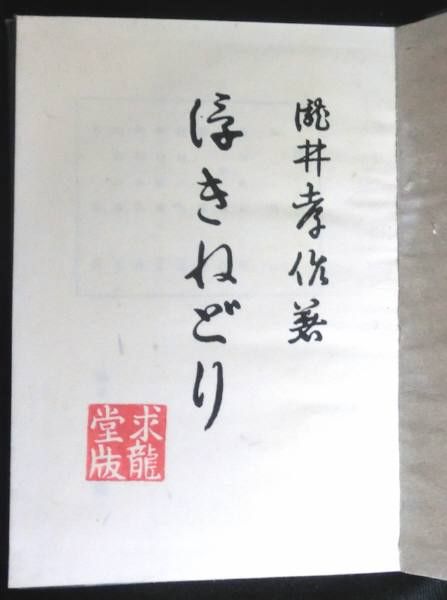 瀧井孝作著
浮きねどり
求龍
堂版